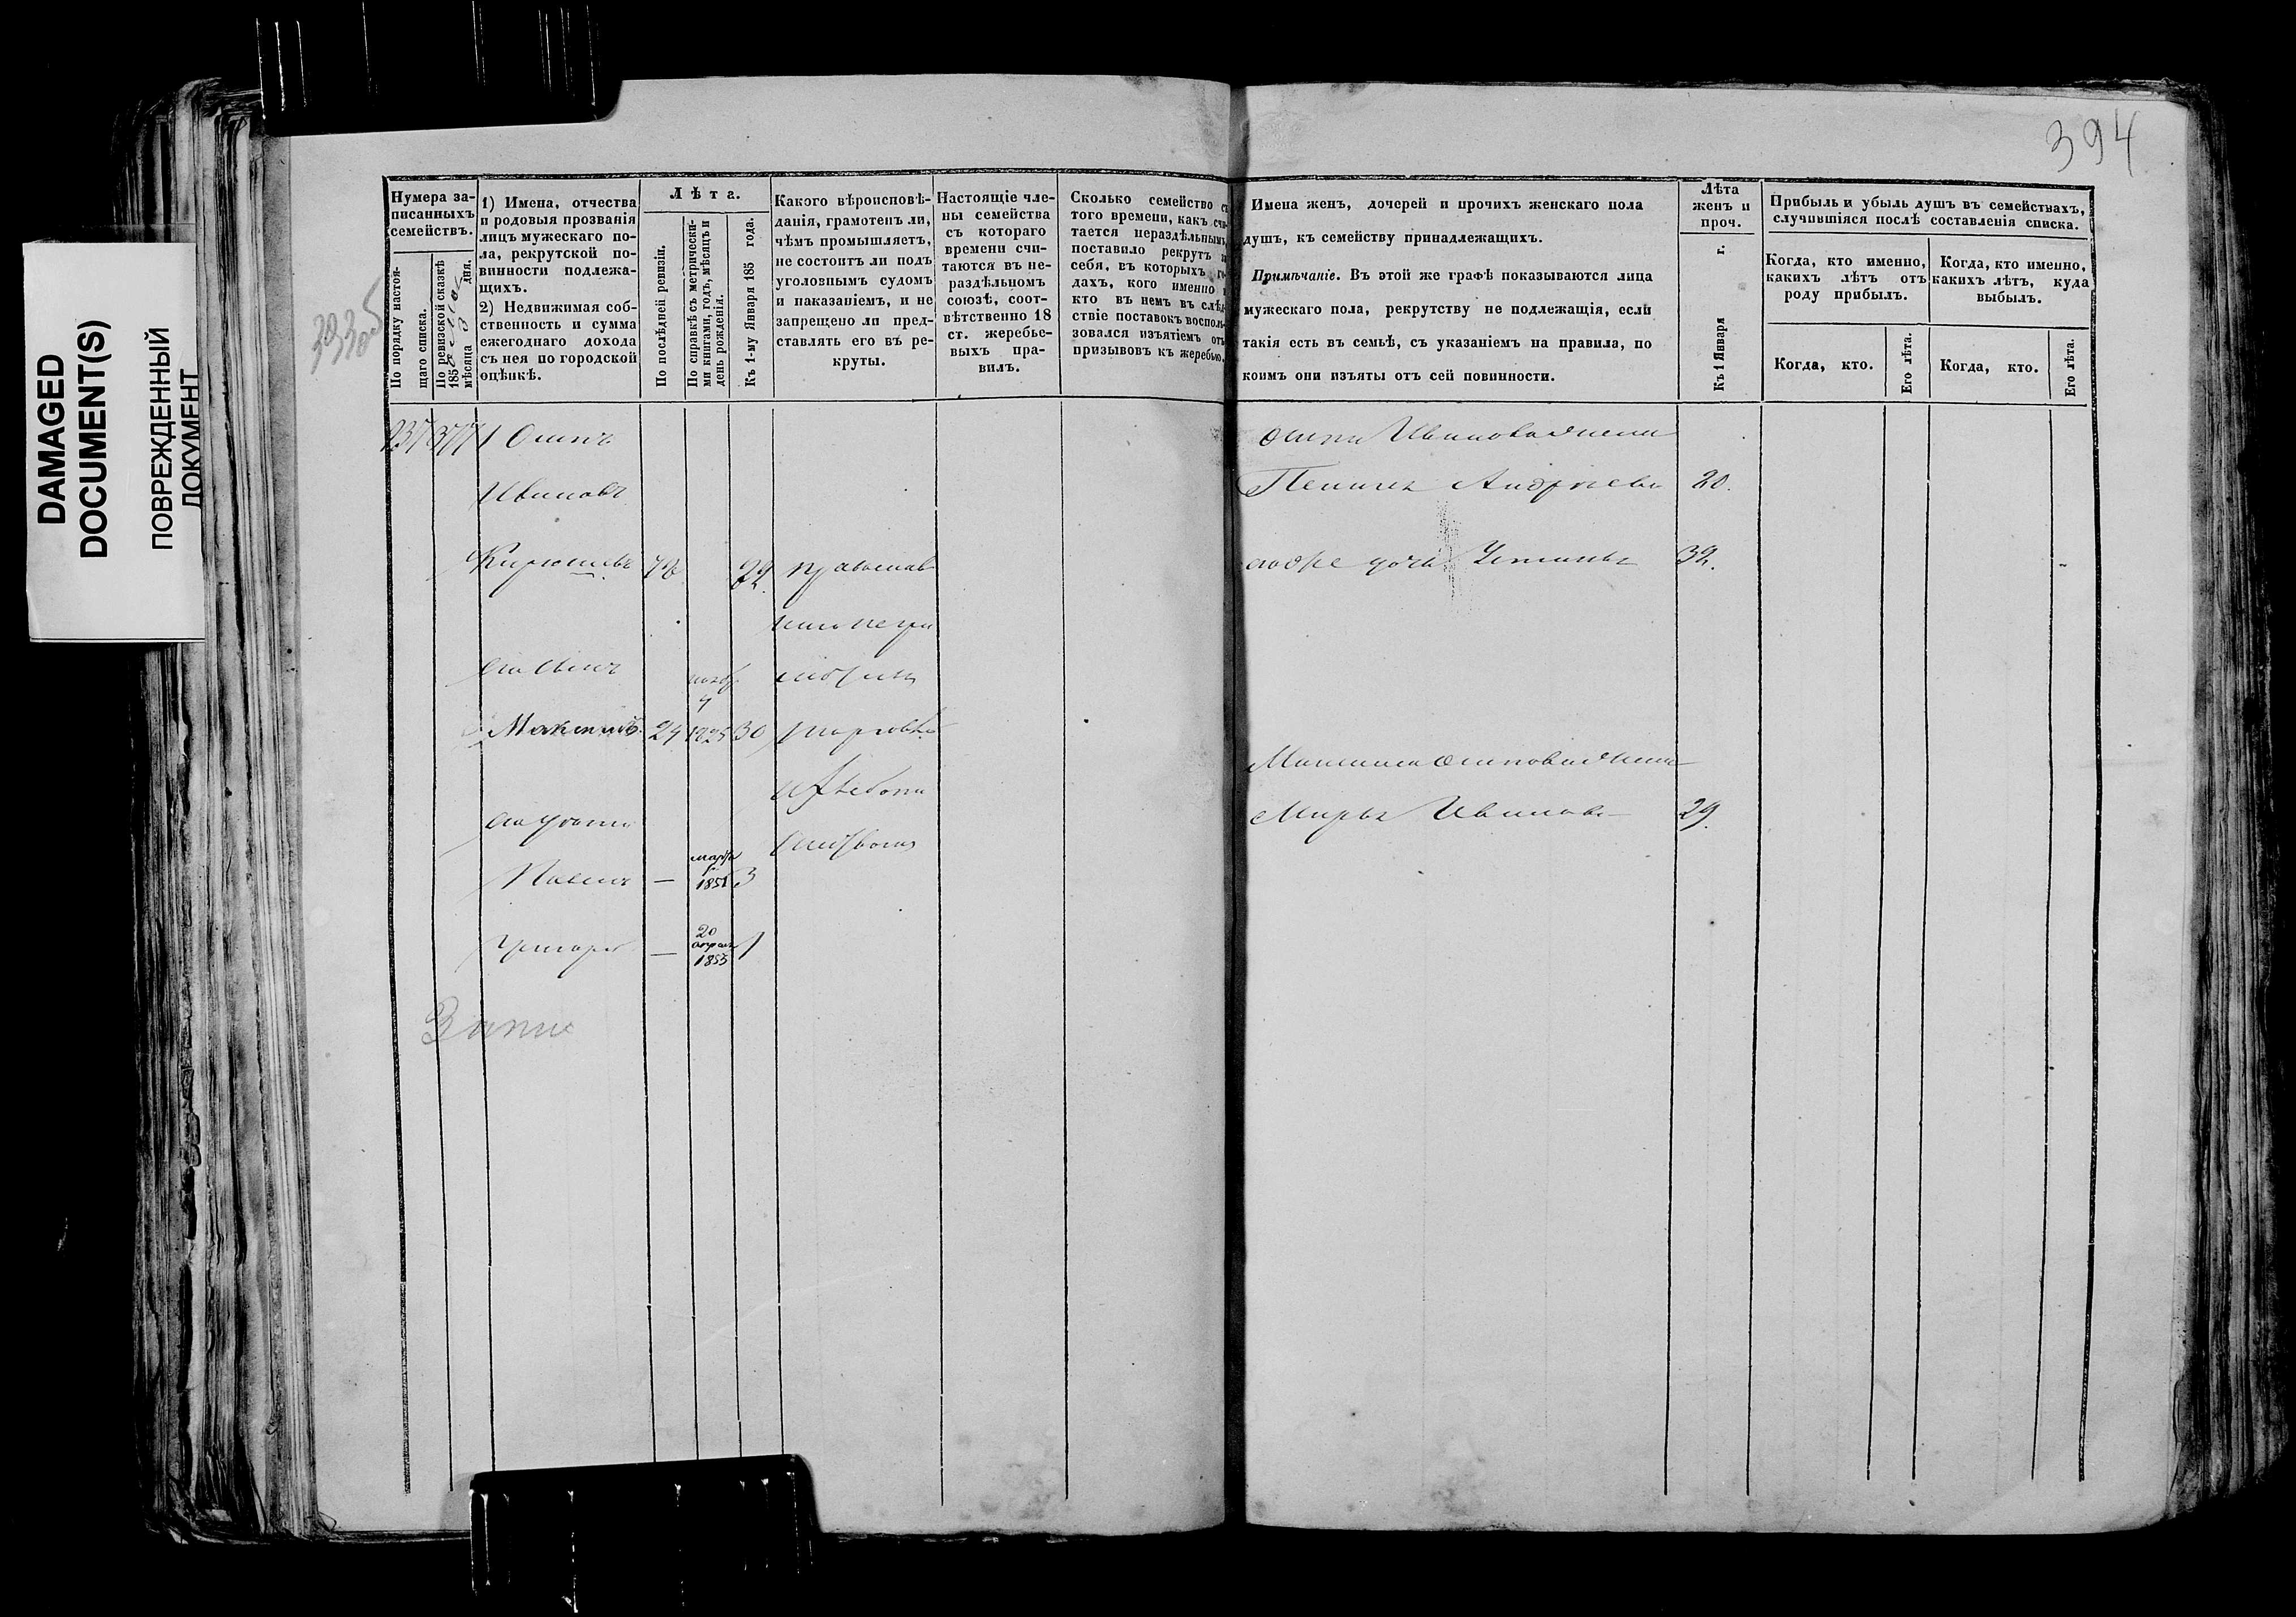 DAMAGED
DOCUMENT(S)
ПОВРЕЖДЕННЫЙ
ДОКУМЕНТ
394
393об
Нумера за-
писанныхъ
семействъ.
По порядку настоя-
щаго списка.
По ревизской сказкѣ
185
мѣсяца дня.
1) Имена, отчества
и родовыя прозванія
лицъ мужескаго по-
ла, рекрутской по-
винности подлежа-
щихъ.
2) Недвижимая соб-
ственность и сумма
ежегоднаго дохода
съ нея по городской
оцѣнкѣ.
Лѣта.
По послѣдней ревизіи.
По справкѣ съ метрически-
ми книгами, годъ, мѣсяцъ и
день рожденія.
Къ 1-му Января 185 года.
Какого вѣроисповѣ-
данія, грамотенъ ли,
чѣмъ промышляетъ,
не состоитъ ли подъ
уголовнымъ судомъ
и наказаніемъ, и не
запрещено ли пред-
ставлять его въ ре-
круты.
Настоящіе чле-
ны семейства
съ котораго
времени счи-
таются въ не-
раздѣльномъ
союзѣ, соот-
вѣтственно 18
ст. жеребье-
выхъ пра-
вилъ.
Сколько семейство съ
того времени, какъ счи-
тается нераздѣльнымъ,
поставило рекрутъ за
себя, въ которыхъ го-
дахъ, кого именно и
кто въ немъ въ слѣд-
ствіе поставокъ восполь-
зовался изъятіемъ отъ
призывовъ къ жеребью.
Имена женъ, дочерей и прочихъ женскаго пола
душъ, къ семейству принадлежащихъ.
Примѣчаніе. Въ этой же графѣ показываются лица
мужескаго пола, рекрутству не подлежащія, если
такія есть въ семьѣ, съ указаніемъ на правила, по
коимъ они изъяты отъ сей повинности.
Лѣта
женъ и
проч.
Къ 1 Января г.
Прибыль и убыль душъ въ семействахъ,
случившіяся послѣ составленія списка.
Когда, кто именно,
какихъ лѣтъ отъ
роду прибылъ.
Когда, кто именно,
какихъ лѣтъ, куда
выбылъ.
Когда, кто.
Его лѣта.
Когда, кто.
Его лѣта.
237 377 Осипъ
Ивановъ
православ
его сынъ
Максимъ 24 1825 30 торговлею
его сыновья
Павелъ — марта 3
Григорій — 20 апреля 1853 1
Осипа Иванова жена
Андреева 20.
дочь Устинья 32.
Максима Осипова жена
Марья Иванова 29.